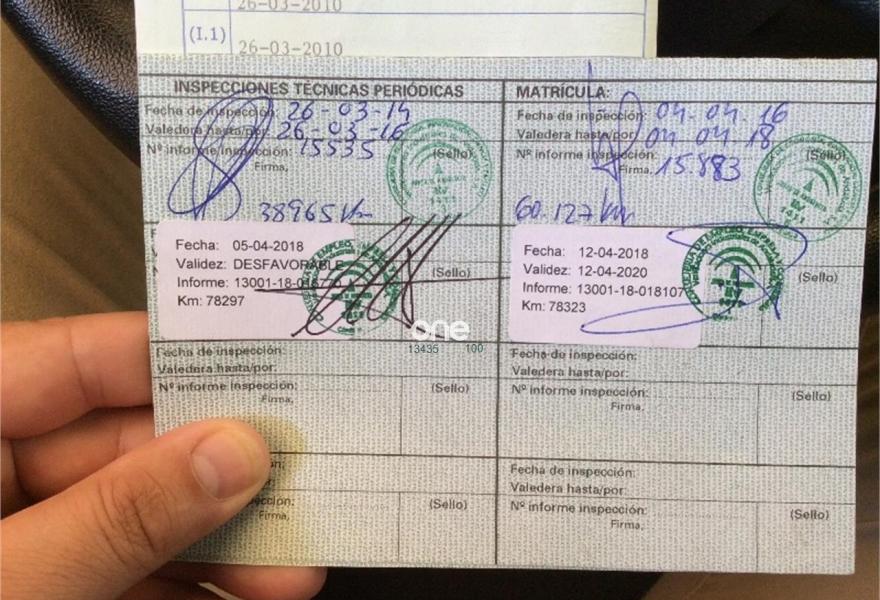 26-03-2010
(I.1)
26-03-2010
INSPECCIONES TÉCNICAS PERIÓDICAS
Fecha de inspección: 26-03-14
Valedera hasta/por: 26-03-16
Nº informe/inspección: 15535
(Sello)
Firma,
38965 Km
MATRÍCULA:
Fecha de inspección: 04-04-16
Valedera hasta/por: 04 04-18
Nº informe inspección:
(Sello)
Firma, 15.883
60.127 km
Fecha: 05-04-2018
Validez: DESFAVORABLE
Informe:
Km: 78297
(Sello)
Fecha: 12-04-2018
Validez: 12-04-2020
Informe: 13001-18-018107
Km: 78323
(Sello)
one
13435 100
Fecha de inspección:
Valedera hasta/por:
Nº informe inspección:
(Sello)
Firma,
Fecha de inspección:
Valedera hasta/por:
Nº informe inspección:
(Sello)
Firma,
(Sello)
Firma,
Fecha de inspección:
Valedera hasta/por:
Nº informe inspección:
(Sello)
Firma,